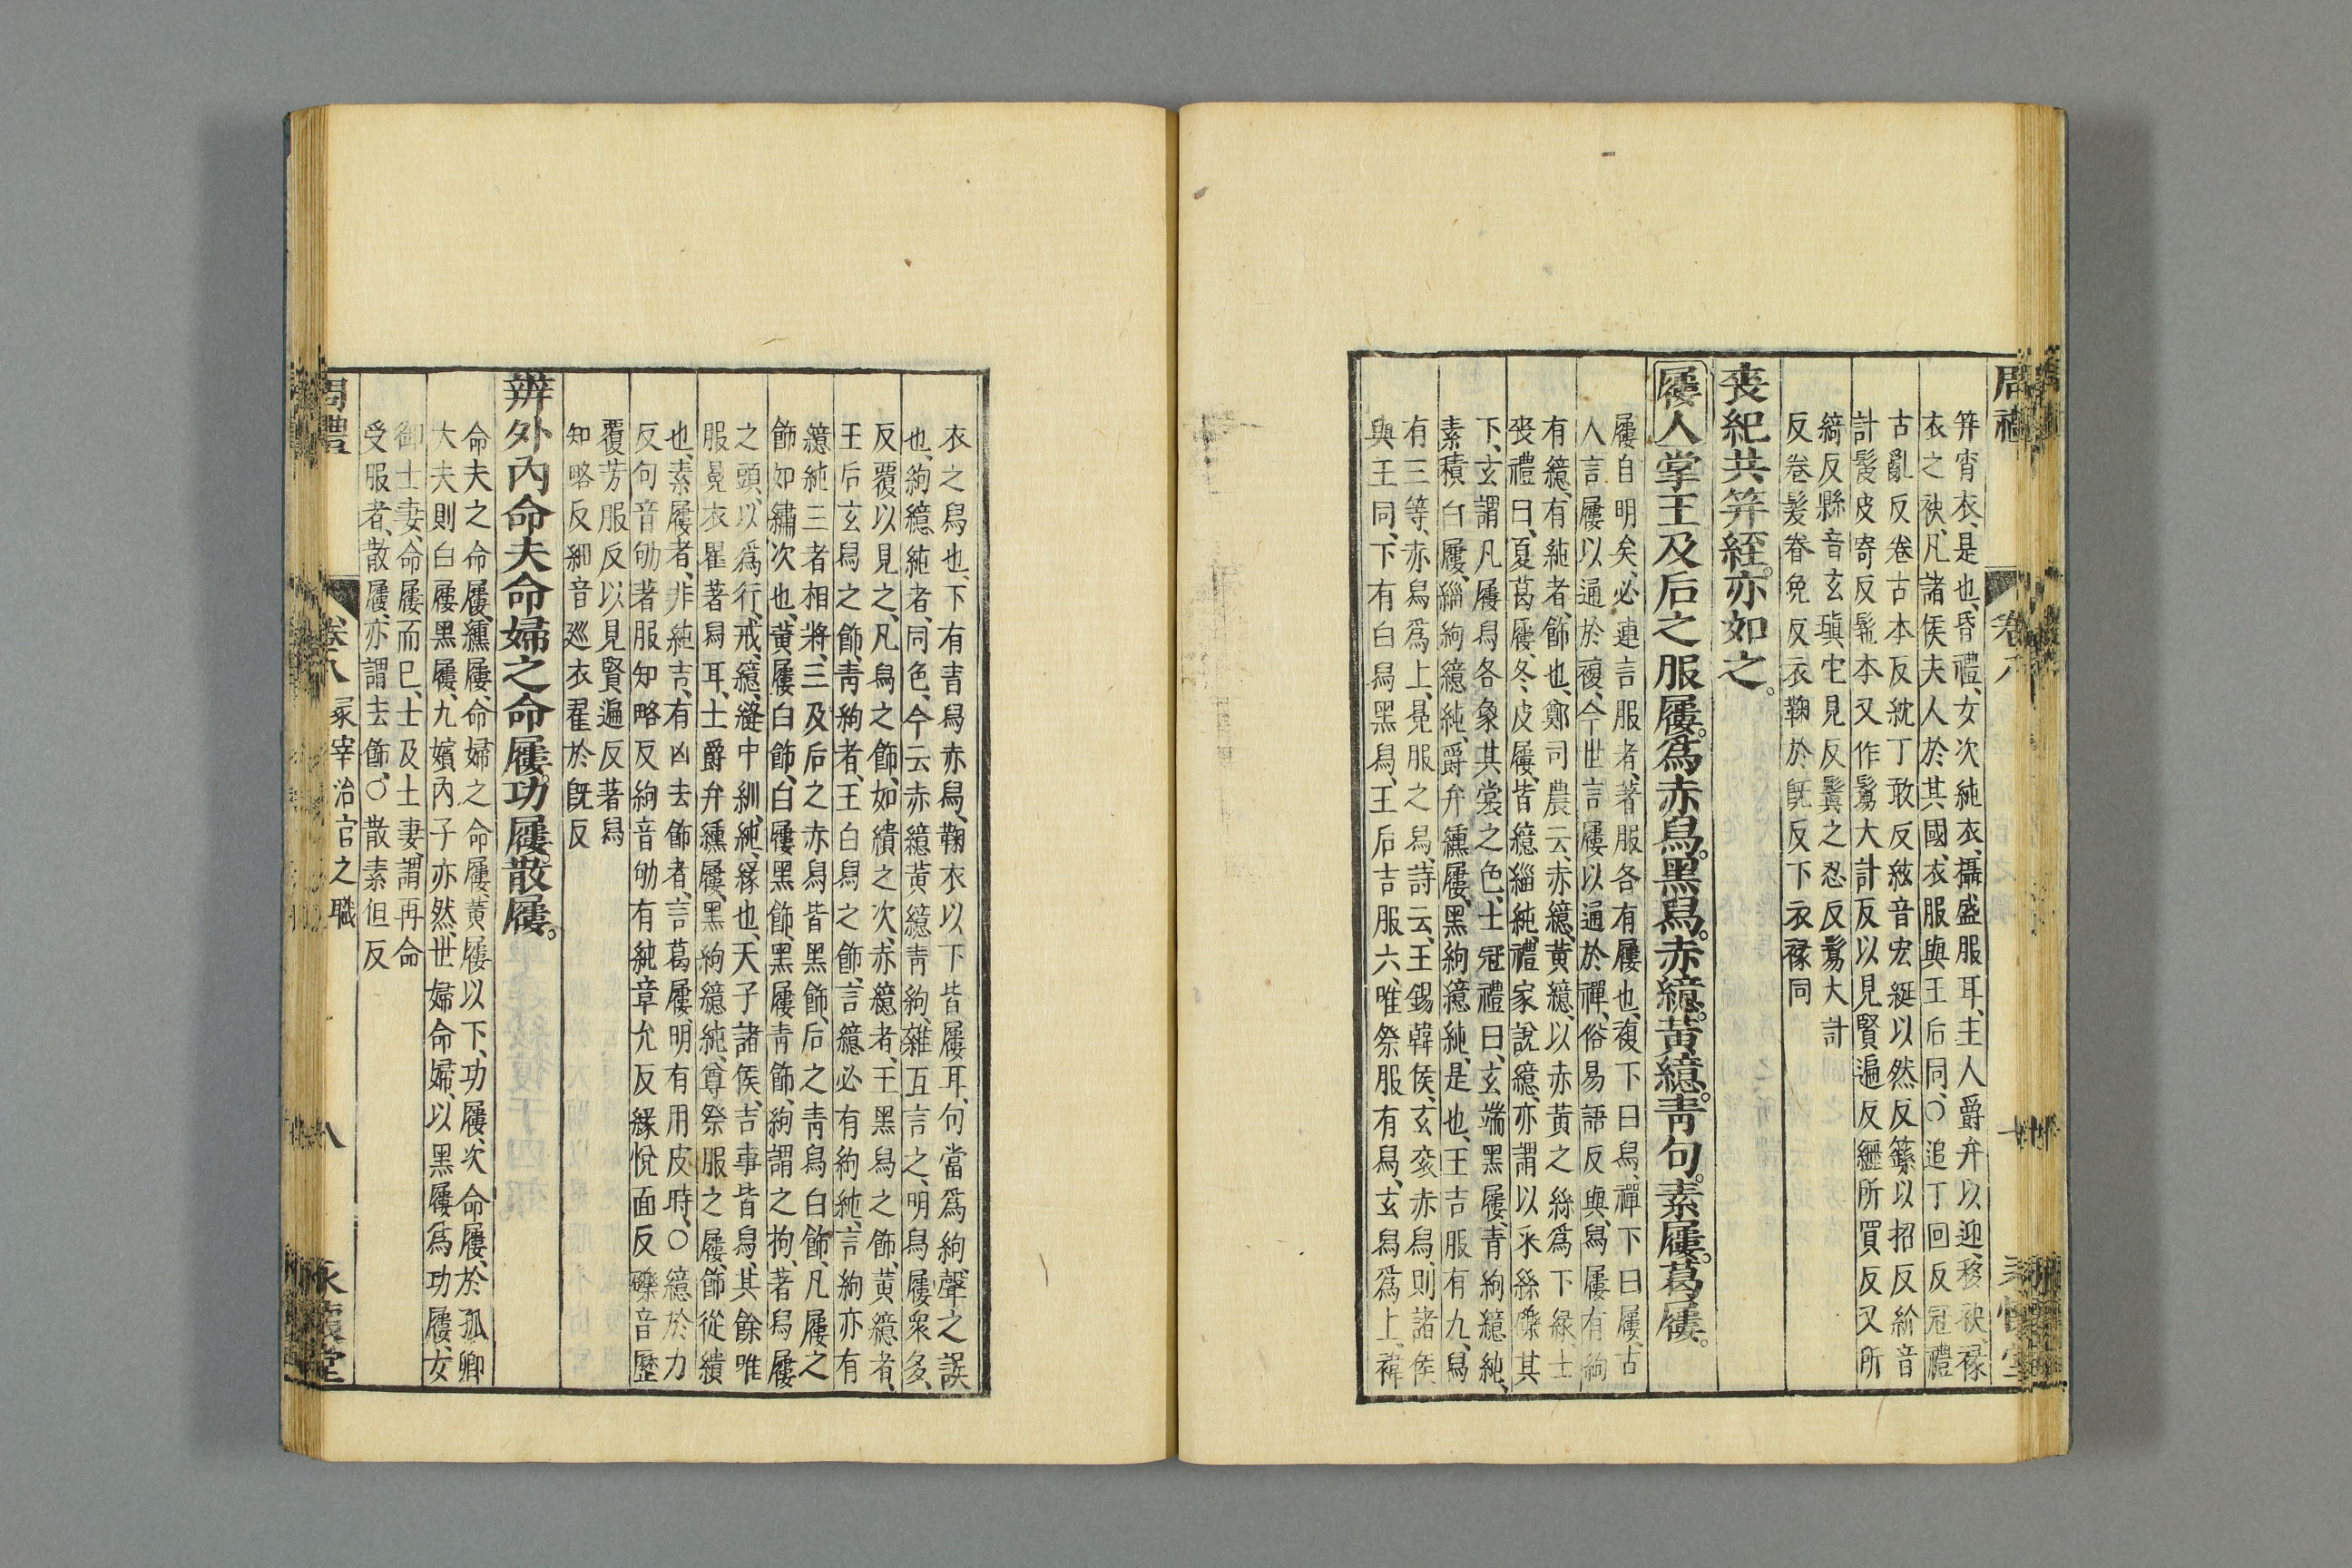 周禮 卷八
笄宵衣、是也、昏禮、女次純衣、攝盛服耳、主人爵弁以迎、移袂、褖
衣之袂、凡諸侯夫人於其國、衣服與王后同、〇追丁回反冠禮
古亂反卷古本反紞丁敢反紘音宏綖以然反䌛以招反紒音
計髲皮寄反髢本又作鬄大計反以見賢遍反纚所買反又所
綺反縣音玄瑱它見反鬒之忍反鬄大計
反卷髮眷免反衣鞠於旣反下衣褖同
喪紀共笄絰。亦如之。
屨人掌王及后之服屨。爲赤舃。黑舃。赤繶。黃繶。靑句。素屨。葛屨。
屨自明矣、必連言服者、著服各有屨也、複下曰舃、禪下曰屨、古
人言屨以通於複、今世言屨以通於禪、俗易語反與、舃屨有絇
有繶、有純者、飾也、鄭司農云、赤繶、黃繶、以赤黃之絲爲下緣、士
喪禮曰、夏葛屨、冬、皮屨、皆繶緇純、禮家說繶、亦謂以采絲礫其
下、玄謂凡屨舃各象其裳之色、士冠禮曰、玄端黑屨、靑絇繶純、
素積白屨、緇絇繶純、爵弁纁屨、黑絇繶純、是也、王吉服有九、舃
有三等、赤舃爲上、冕服之舃、詩云、王錫韓侯、玄袞赤舃、則諸侯
與王同、下有白舃黑舃、王后吉服六、唯祭服有舃、玄舃爲上、褘
衣之舃也、下有靑舃赤舃、鞠衣以下皆屨耳、句當爲絇、聲之誤
也、絇繶純者、同色、今云赤繶黃繶靑絇、雜互言之、明舃屨衆多、
反覆以見之、凡舃之飾、如繢之次、赤繶者、王黑舃之飾、黃繶者、
王后玄舃之飾、靑絇者、王白舃之飾、言繶必有絇純、言絇亦有
繶純三者相將、三及后之赤舃皆黑飾、后之靑舃白飾、凡屨之
飾如繡次也、黃屨白飾、白屨黑飾、黑屨靑飾、絇謂之拘、著舃屨
之頭、以爲行、戒、繶、縫中紃、純、緣也、天子諸侯、吉事皆舃、其餘唯
服冕衣翟著舃耳、士爵弁纁屨、黑絇繶純、尊祭服之屨、飾從繢
也、素屨者、非純吉、有凶去飾者、言葛屨、明有用皮時、〇繶於力
反句音劬著服知略反絇音劬有純章允反緣悅面反礫音歷
覆芳服反以見賢遍反著舃
知略反紃音巡衣翟於旣反
辨外內命夫命婦之命屨。功屨。散屨。
命夫之命屨、纁屨、命婦之命屨、黃屨以下、功屨、次命屨、於孤卿
大夫則白屨黑屨、九嬪內子亦然、世婦命婦、以黑屨爲功屨、女
御士妻、命屨而已、士及士妻、謂再命
受服者、散屨、亦謂去飾、〇散素但反
周禮 卷八 冢宰治官之職 八 永懷堂